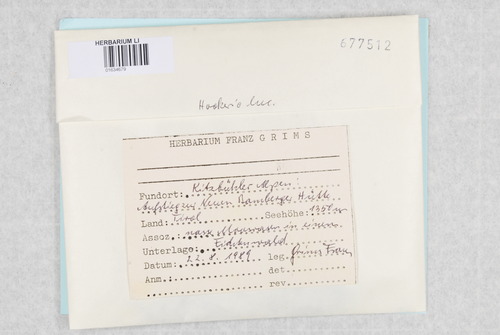 HERBARIUM LI
677512
Hookeria luc.
HERBARIUM FRANZ GRIMS
Fundort: Kitzbühler Alpen:
Aufstieg zur Neuen Bamberger Hütte
Land: Tirol Seehöhe: 1350 m
Assoz. nasse in einem
Unterlage: Fichtenwald
Datum: 22.8.1989 leg. Grims Franz
Anm.: det.
rev.